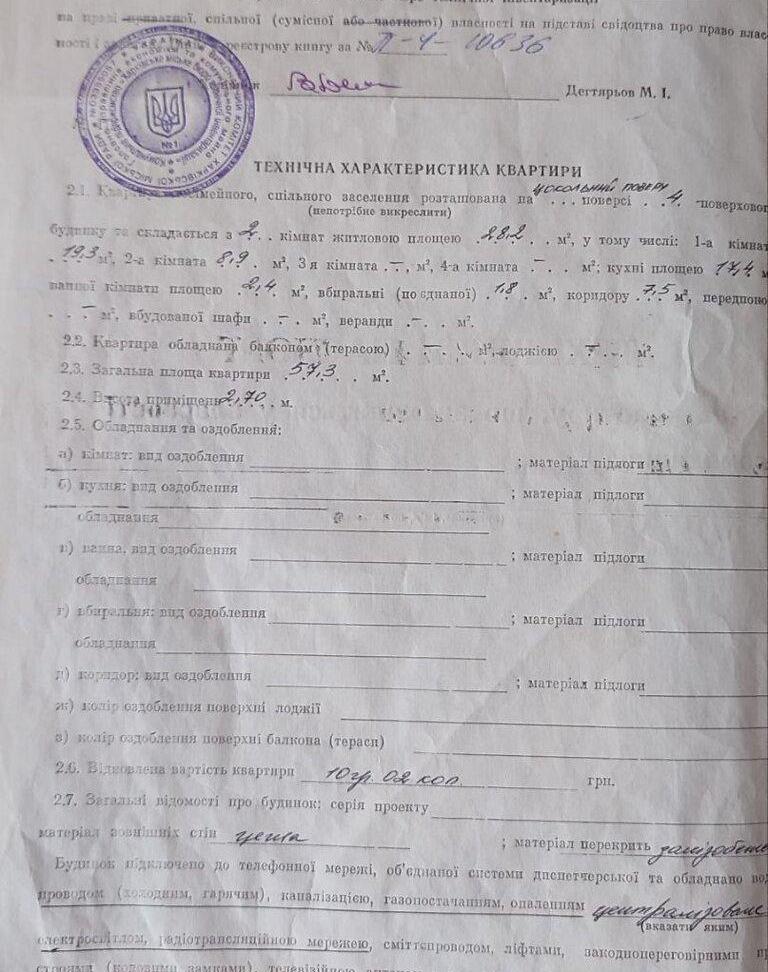 на праві приватної, спільної (сумісної або часткової) власності на підставі свідоцтва про право влас
ності і реєстрову книгу за № П-4-10636
Дегтярьов М. І.
ТЕХНІЧНА ХАРАКТЕРИСТИКА КВАРТИРИ
цокольний поверх
2.1. сімейного, спільного заселення розташована на . . . поверсі . . 4. -поверховог
(непотрібне викреслити)
будинку та складається з 2. . кімнат житловою площею . 28,2 . . м², у тому числі: 1-а кімнат
. 19,3 м², 2-а кімната 8,9 . м², 3 я кімната . – , м², 4-а кімната . – . . м²; кухні площею 17,4 м
ванної кімнати площею 2,4 м², вбиральні (поєднаної) . 1,8 . м², коридору . 7,5 м², передпоко
. . – м², вбудованої шафи . – . м², веранди . – . . м².
2.2. Квартира обладнана балконом (терасою) . – . м², лоджією . – . . м².
2.3. Загальна площа квартири . 57,3 . . м².
2.4. Висота приміщень 2,70 . . м.
2.5. Обладнання та оздоблення:
а) кімнат: вид оздоблення ; матеріал підлоги
б) кухня: вид оздоблення ; матеріал підлоги
обладнання
в) ванна, вид оздоблення ; матеріал підлоги
обладнання
г) вбиральня: вид оздоблення ; матеріал підлоги
обладнання
д) коридор: вид оздоблення ; матеріал підлоги
ж) колір оздоблення поверхні лоджії
з) колір оздоблення поверхні балкона (тераси)
2.6. Відновлена вартість квартири 10гр. 02 коп. грн.
2.7. Загальні відомості про будинок: серія проекту
матеріал зовнішніх стін цегла ; матеріал перекрить залізобетон
Будинок підключено до телефонної мережі, об'єднаної системи диспетчерської та обладнано во
проводом (холодним, гарячим), каналізацією, газопостачанням, опаленням централізоване
(вказати яким)
електросвітлом, радіотрансляційною мережею, сміттєпроводом, ліфтами, закоднопереговірними пр
строями (кодовими замками), телевізійною